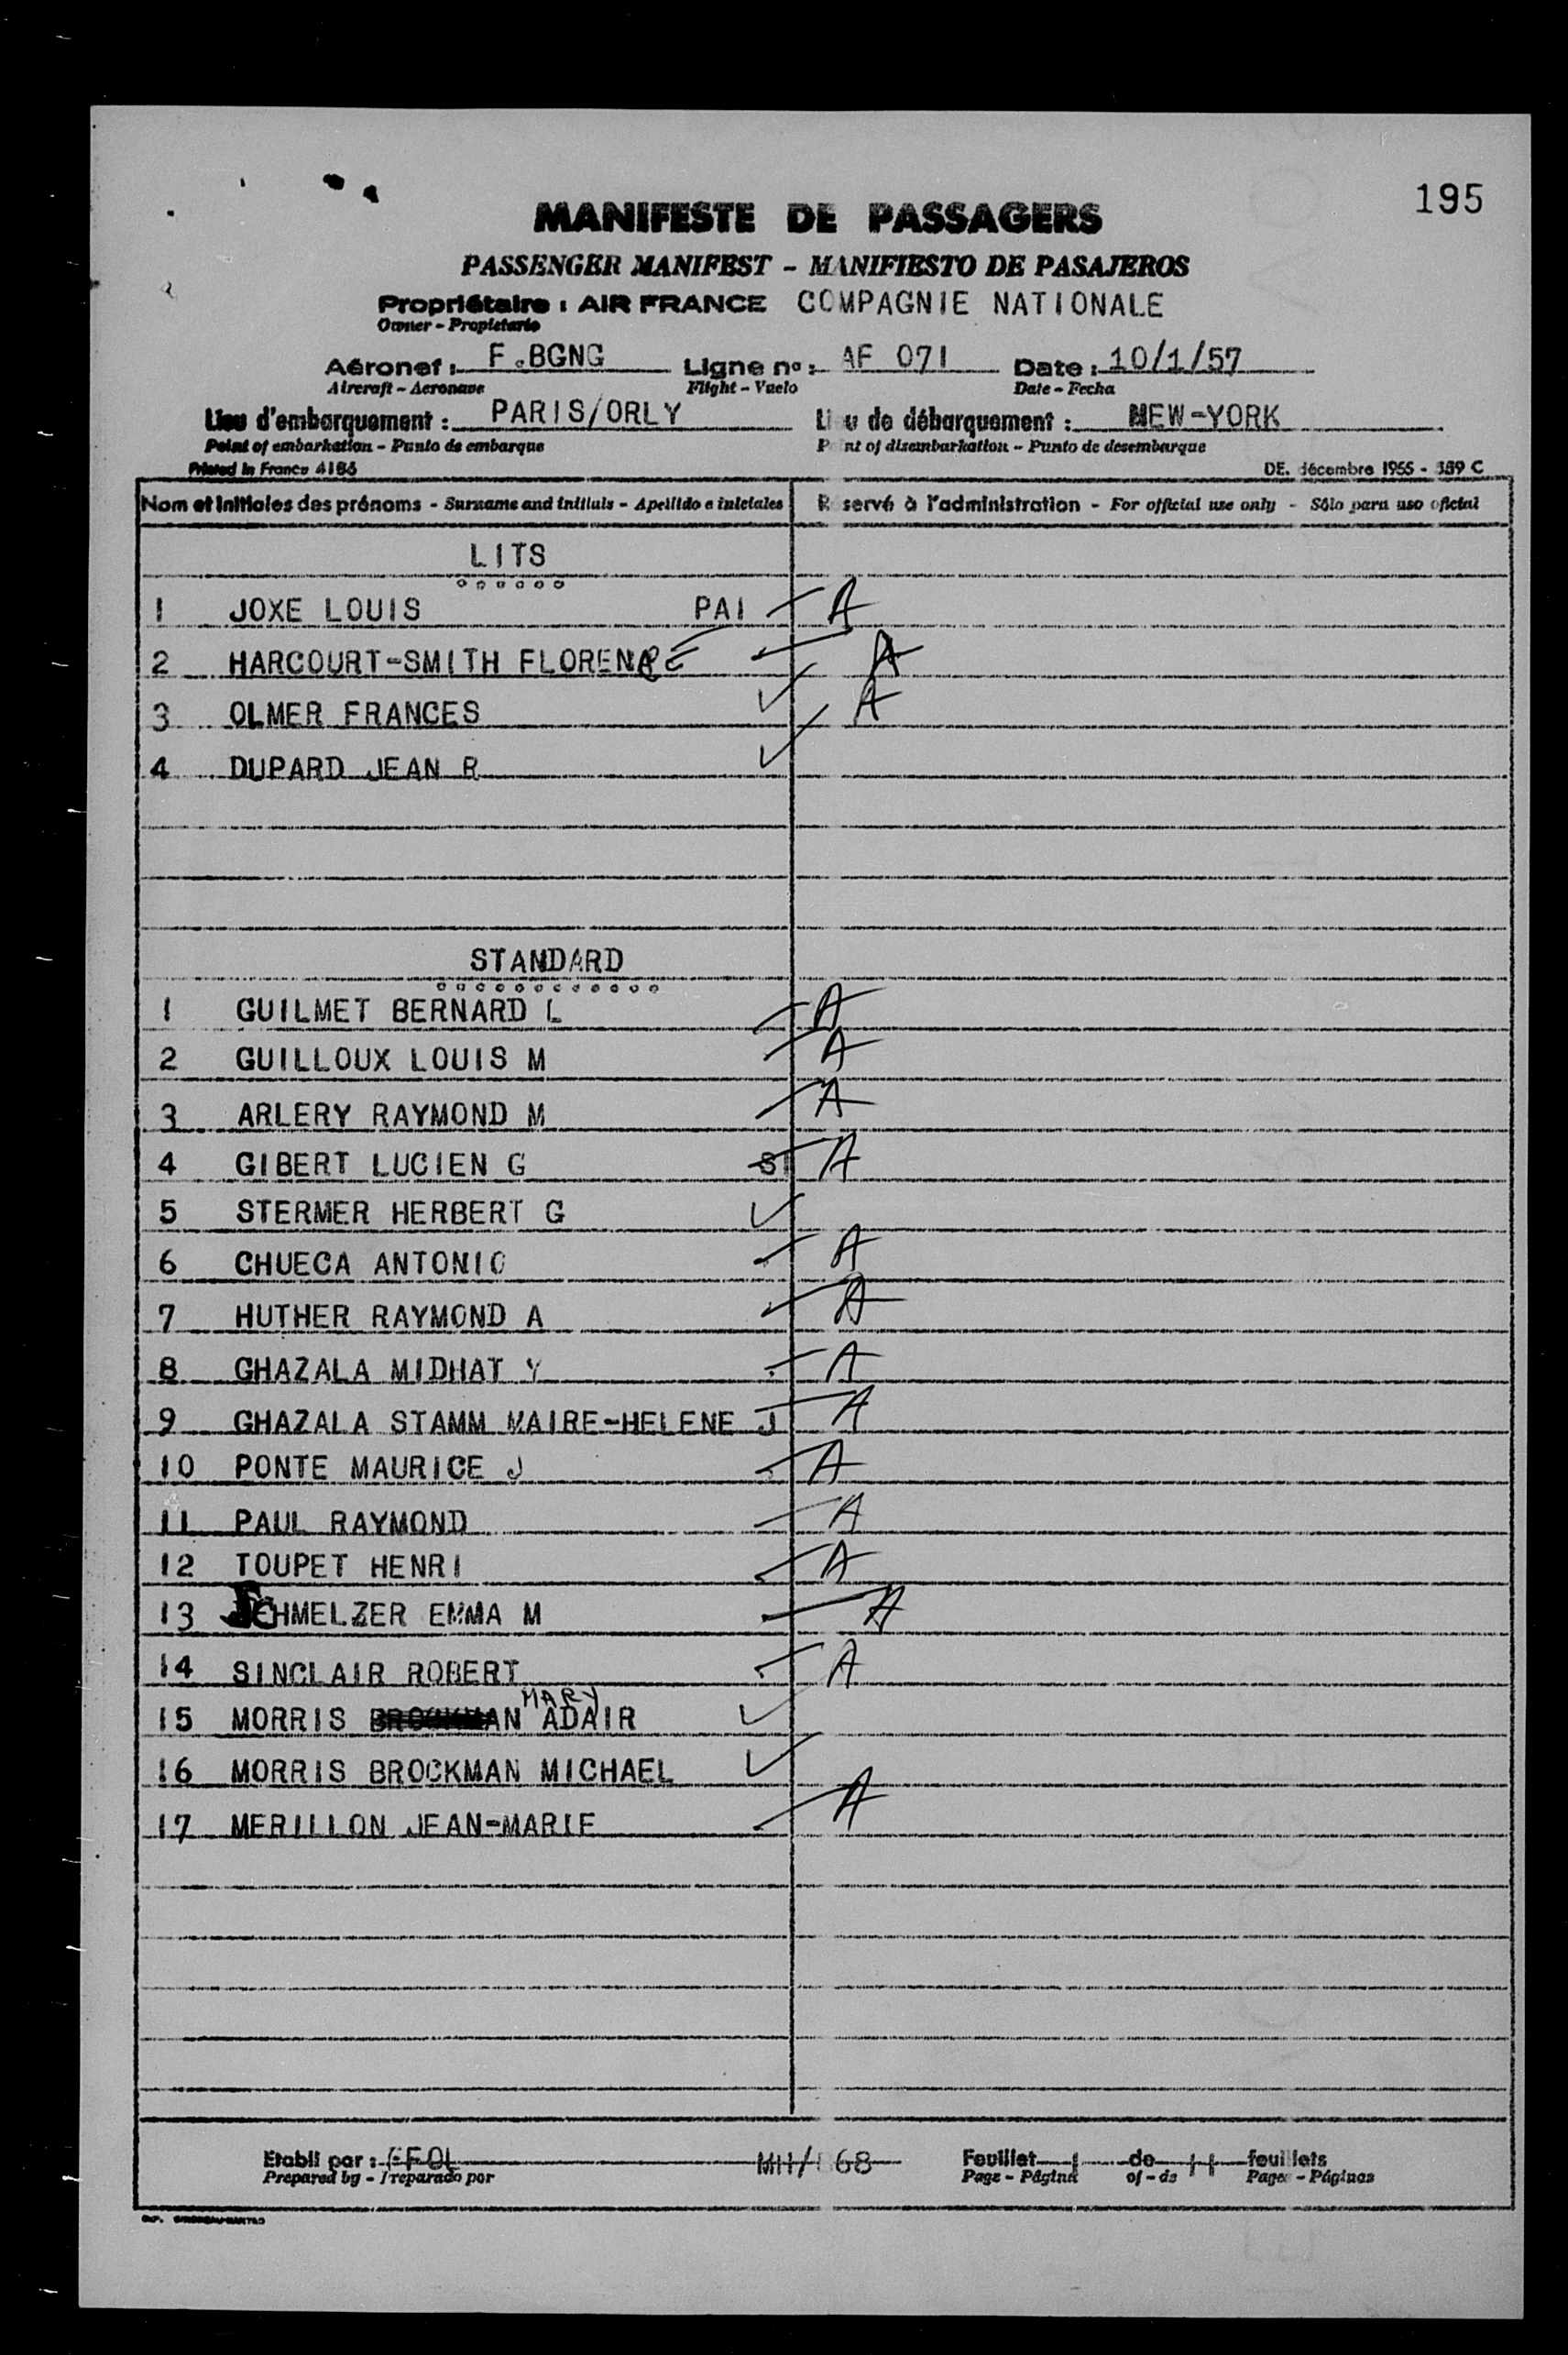 195
MANIFESTE DE PASSAGERS
PASSENGER MANIFEST - MANIFIESTO DE PASAJEROS
Propriétaire : AIR FRANCE COMPAGNIE NATIONALE
Owner - Propietario
Aéronef : F.BGNG Ligne no : AF 071 Date : 10/1/57
Aircraft - Aeronave Flight - Vuelo Date - Fecha
Lieu d'embarquement : PARIS/ORLY Lieu de débarquement : NEW-YORK
Point of embarkation - Punto de embarque Point of disembarkation - Punto de desembarque
Printed in France 4186 DE. décembre 1955 - 389 C
Nom et initiales des prénoms - Surname and initials - Apellido e iniciales Réservé à l'administration - For official use only - Sólo para uso oficial
LITS
1 JOXE LOUIS PAI A
2 HARCOURT-SMITH FLORENCE A
3 OLMER FRANCES A
4 DUPARD JEAN R
STANDARD
1 GUILMET BERNARD L A
2 GUILLOUX LOUIS M A
3 ARLERY RAYMOND M A
4 GIBERT LUCIEN G A
5 STERMER HERBERT G
6 CHUECA ANTONIO A
7 HUTHER RAYMOND A A
8 GHAZALA MIDHAT Y A
9 GHAZALA STAMM MAIRE-HELENE J A
10 PONTE MAURICE J A
11 PAUL RAYMOND A
12 TOUPET HENRI A
13 SCHMELZER EMMA M A
14 SINCLAIR ROBERT A
MARY
15 MORRIS BROCKMAN ADAIR
16 MORRIS BROCKMAN MICHAEL
17 MERILLON JEAN-MARIE A
Etabli par : Feuillet 1 de feuillets
Prepared by - Preparado por Page - Página of - de Pages - Páginas